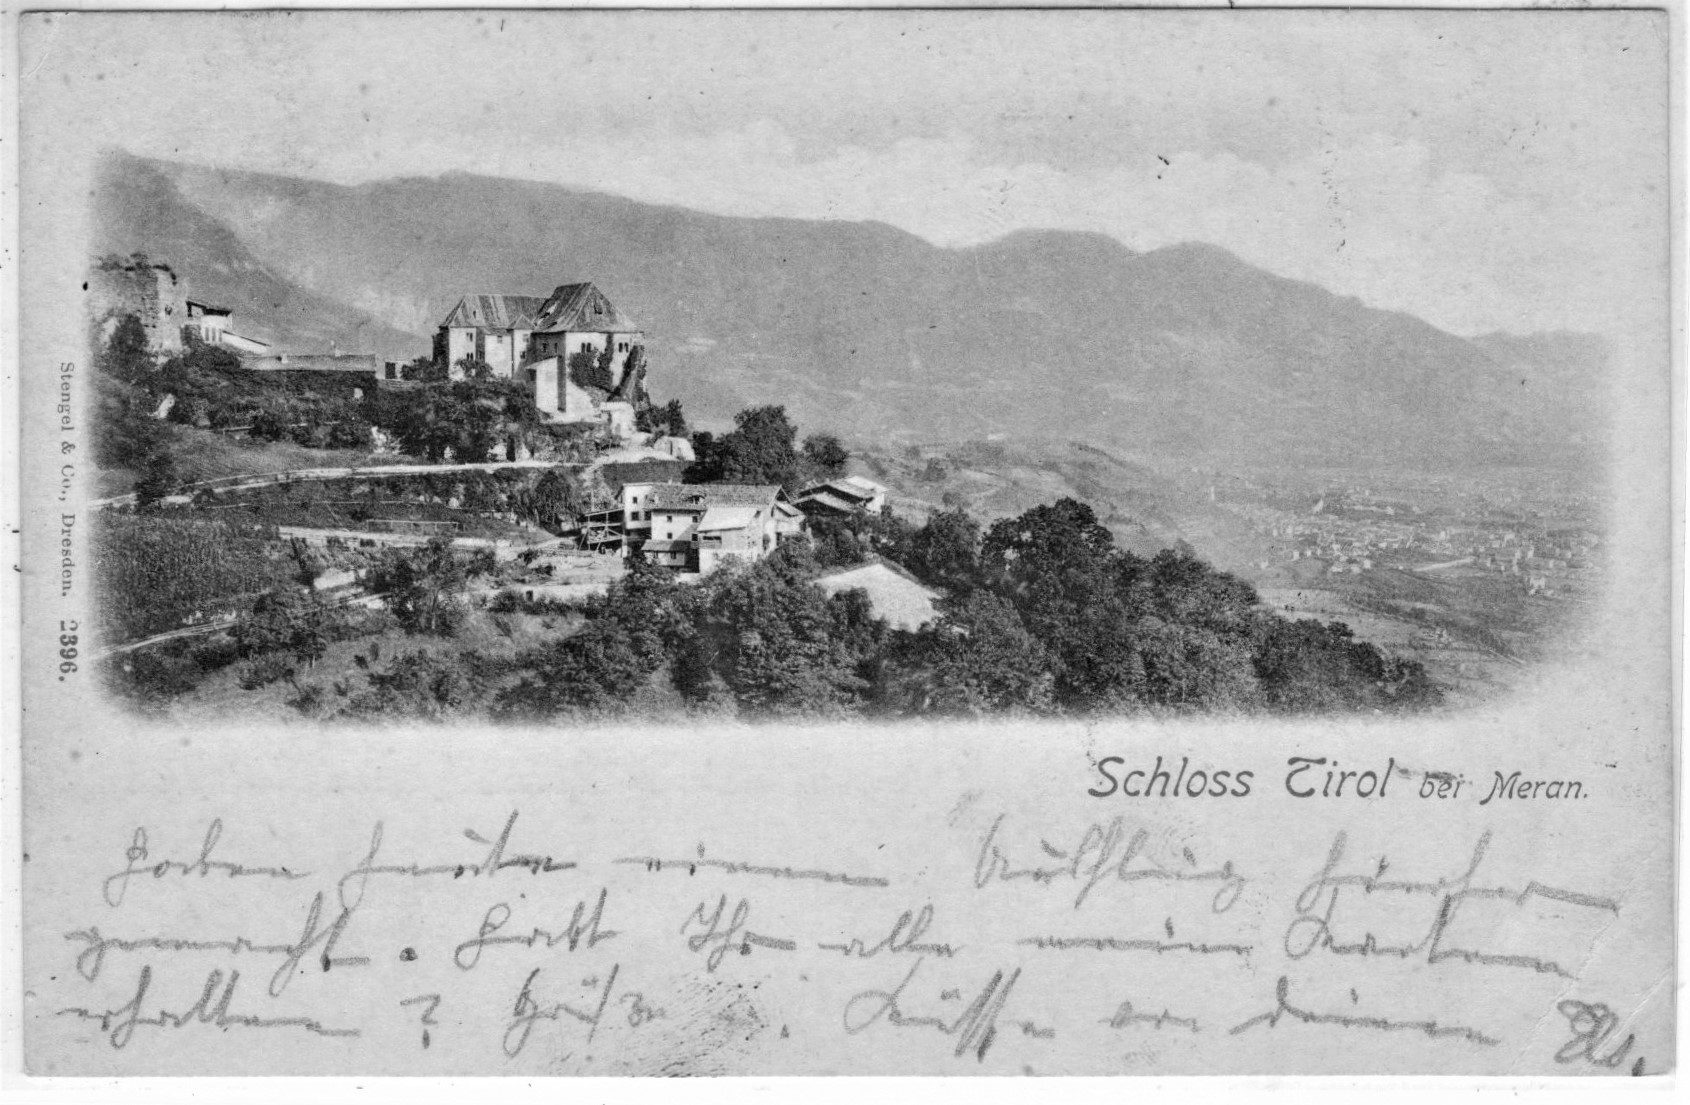 Stengel & Co., Dresden. 2396.
Schloss Tirol bei Meran.
Haben heute einen Ausflug hierher
gemacht. Habt Ihr alle meine Karten
erhalten? Grüße. Küsse von deinem